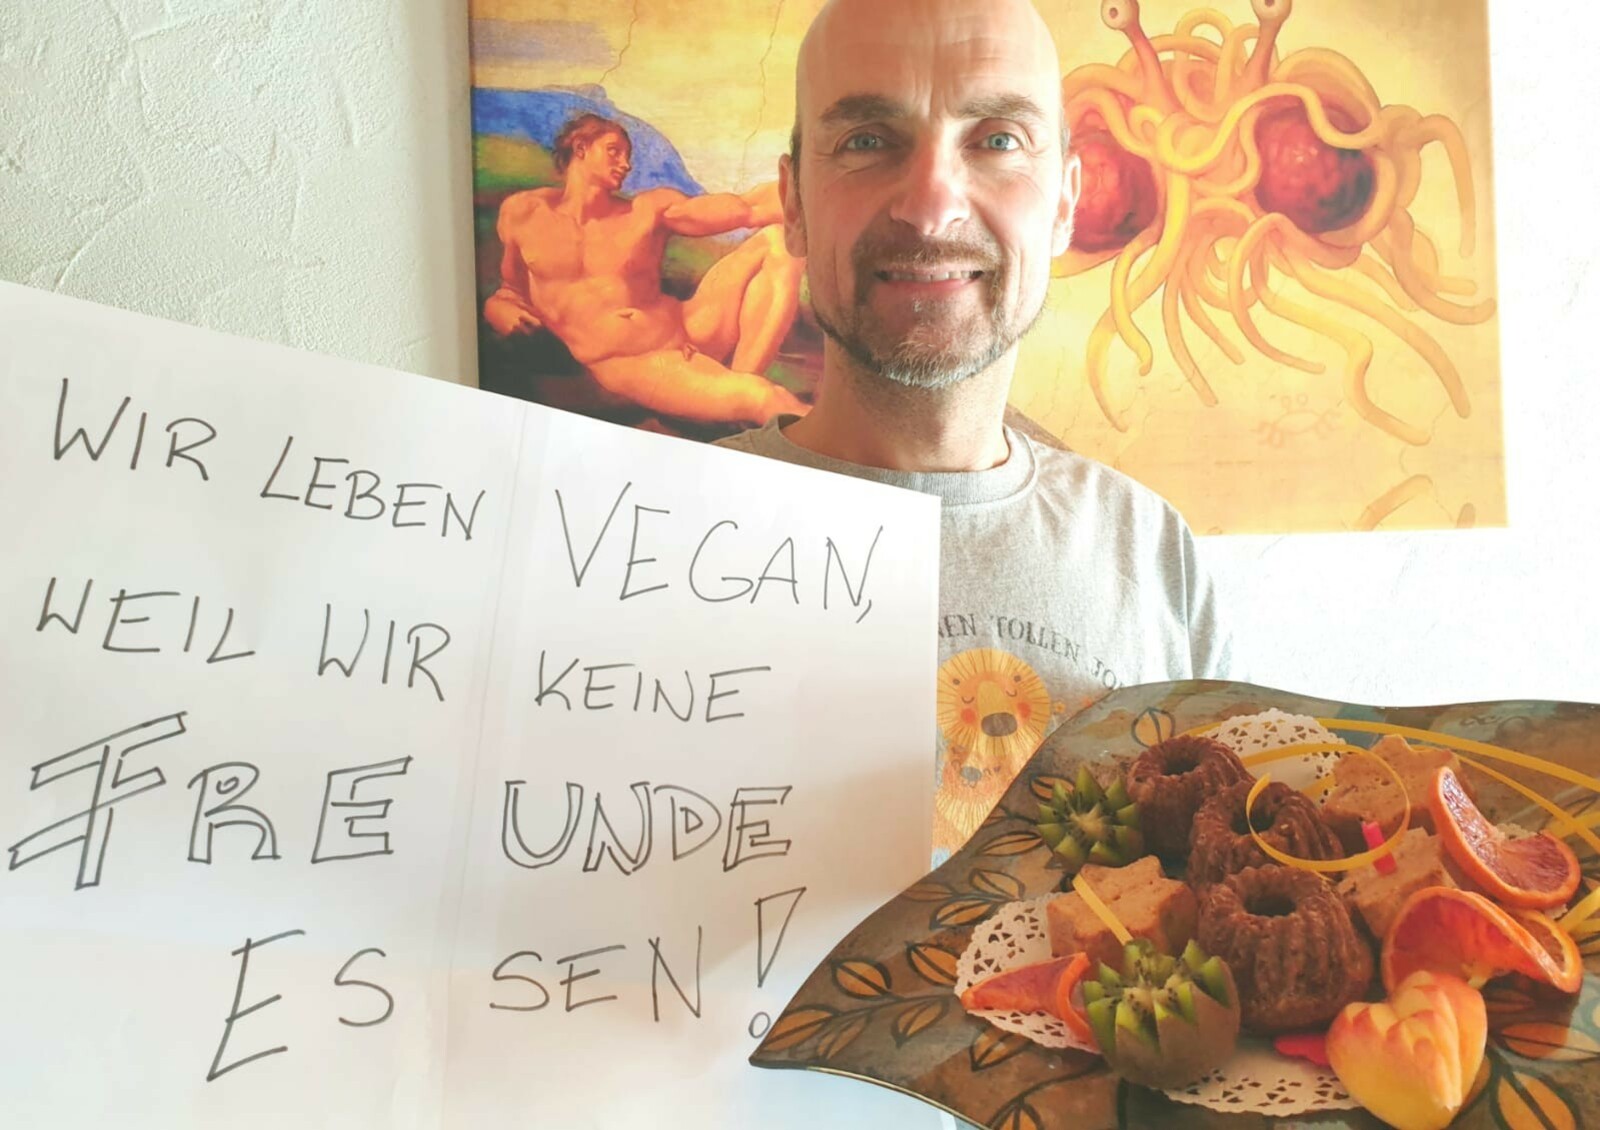 WIR LEBEN VEGAN,
WEIL WIR KEINE
FREUNDE
ESSEN!
TOLLEN